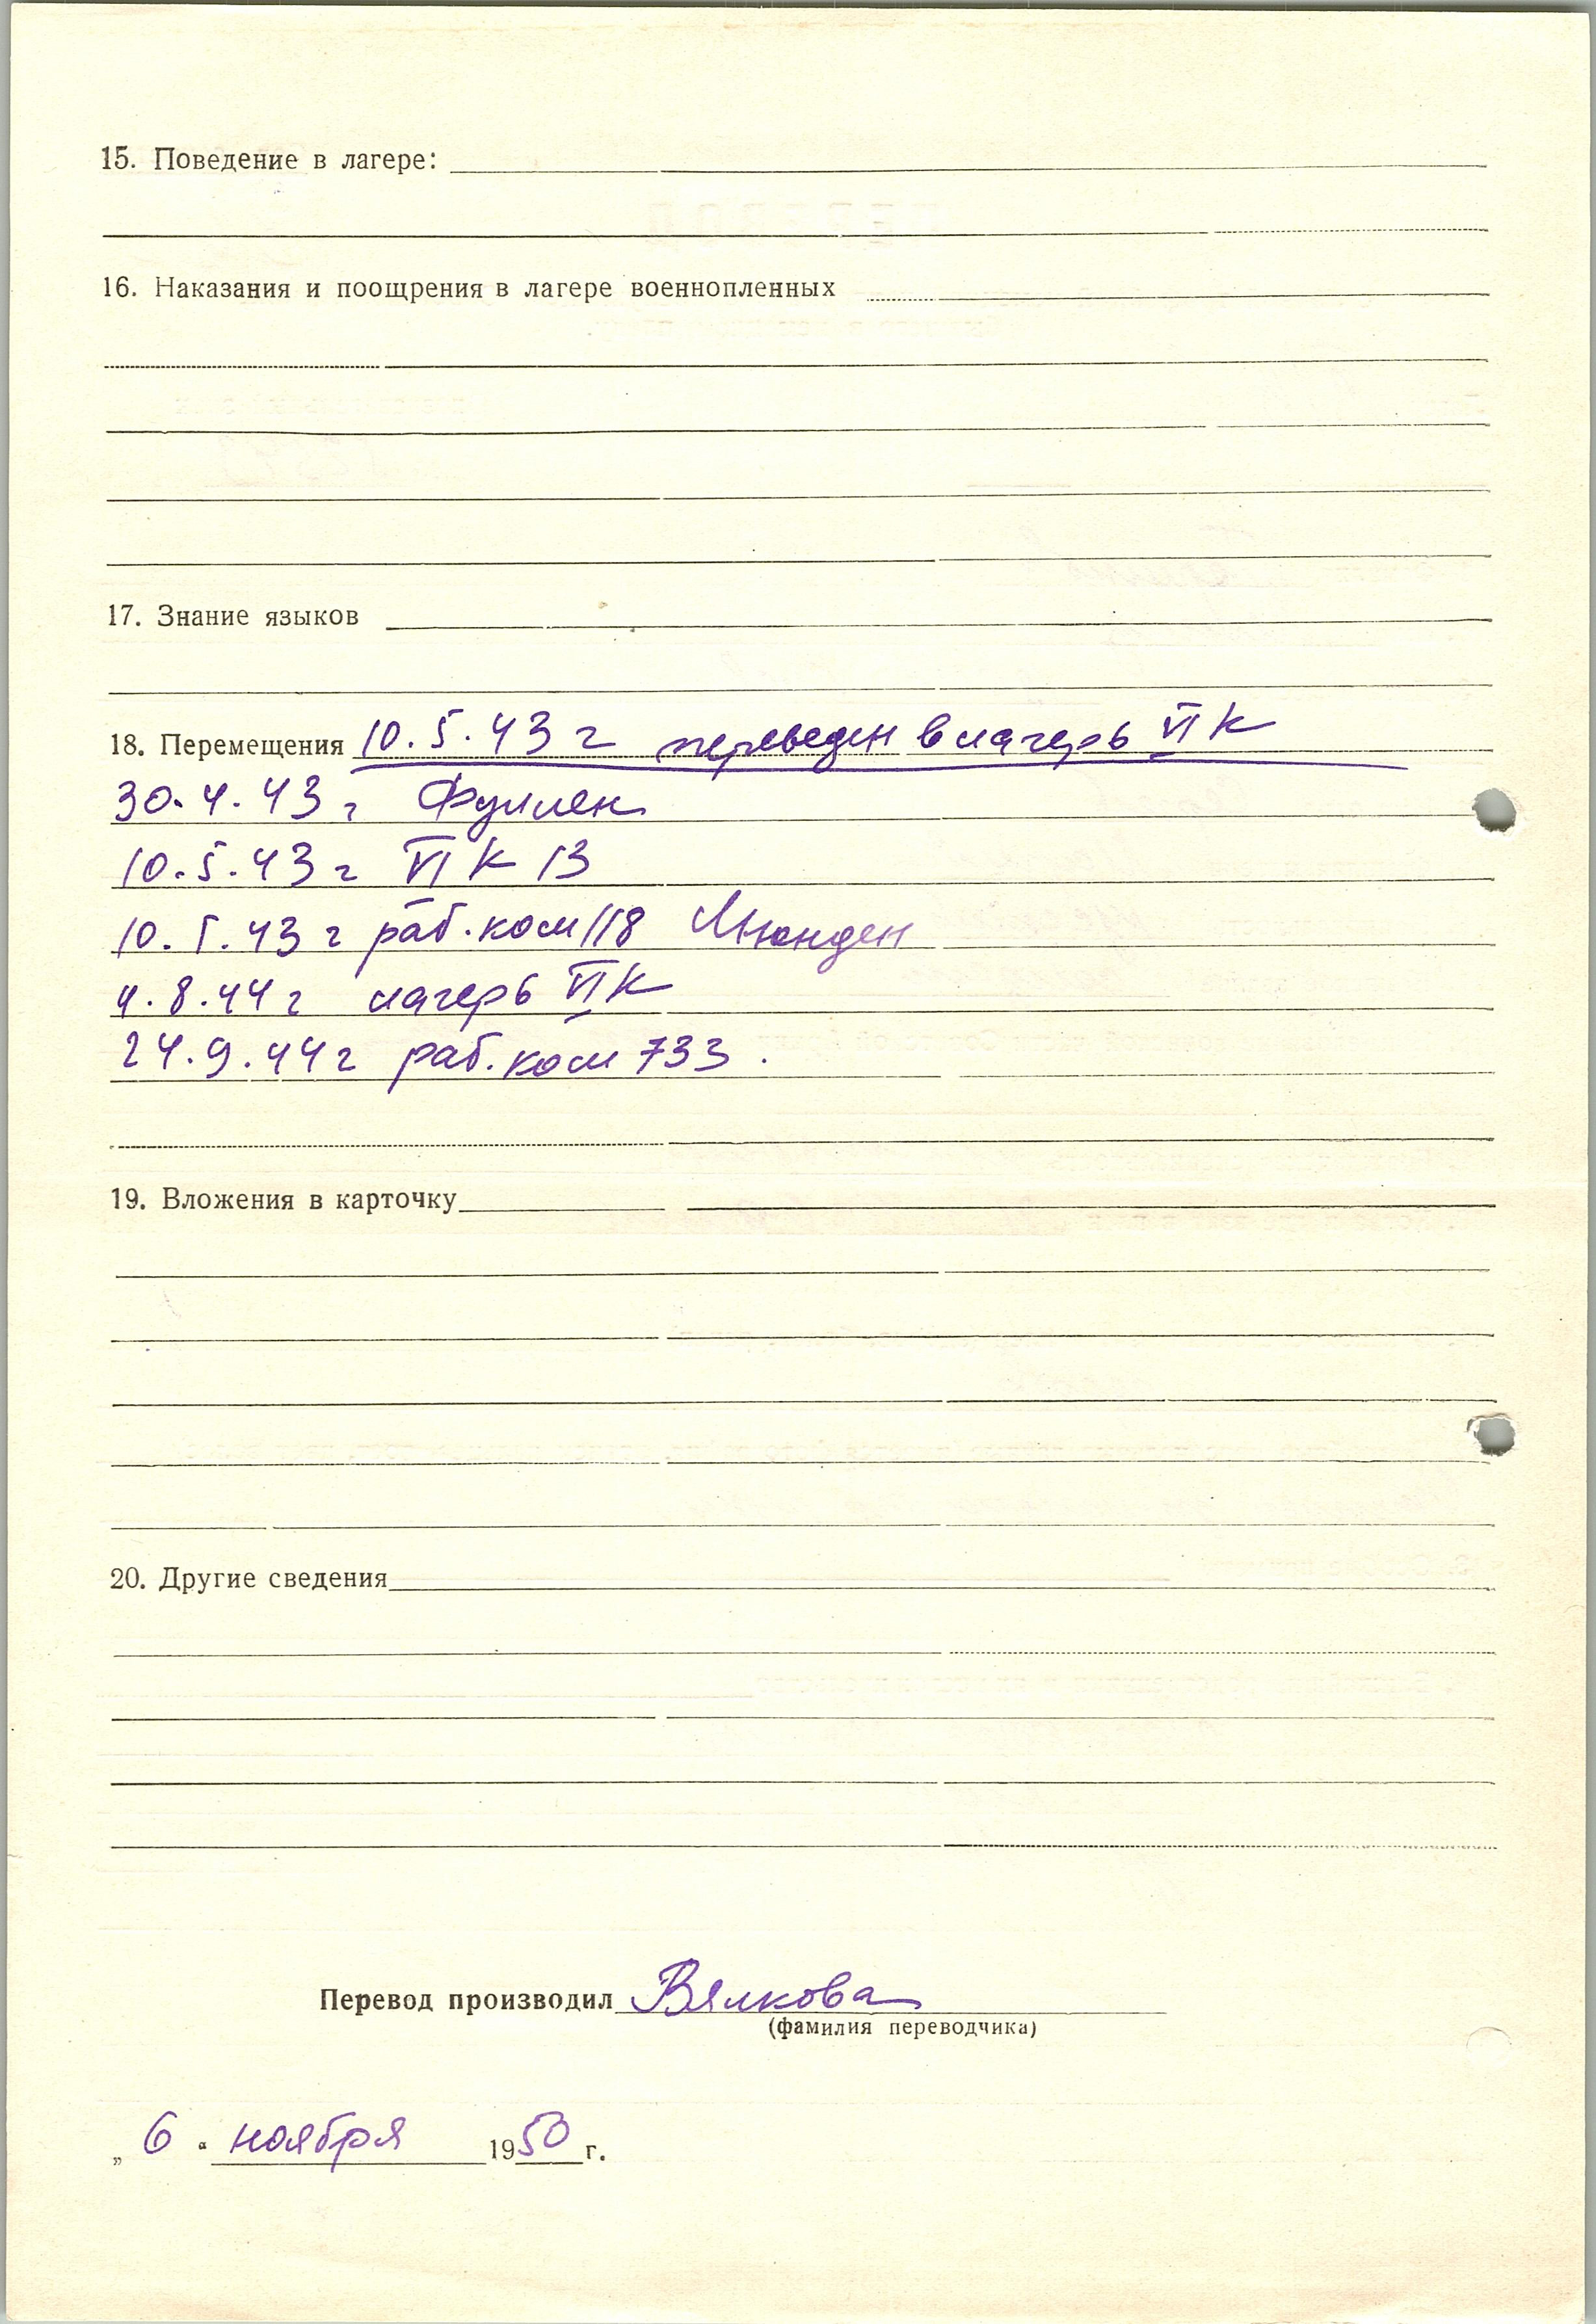 15. Поведение в лагере:
16. Наказания и поощрения в лагере военнопленных
17. Знание языков
18. Перемещения 10.5.43 г переведен в лагерь VI К
30.4.43 г Фуллен
10.5.43 г VI К 13
10.5.43 г раб.ком 118 Мюнден
4.8.44 г лагерь VI К
24.9.44 г раб.ком 733.
19. Вложения в карточку
20. Другие сведения
Перевод производил Вялкова
(фамилия переводчика)
„ 6 “ ноября 1950 г.